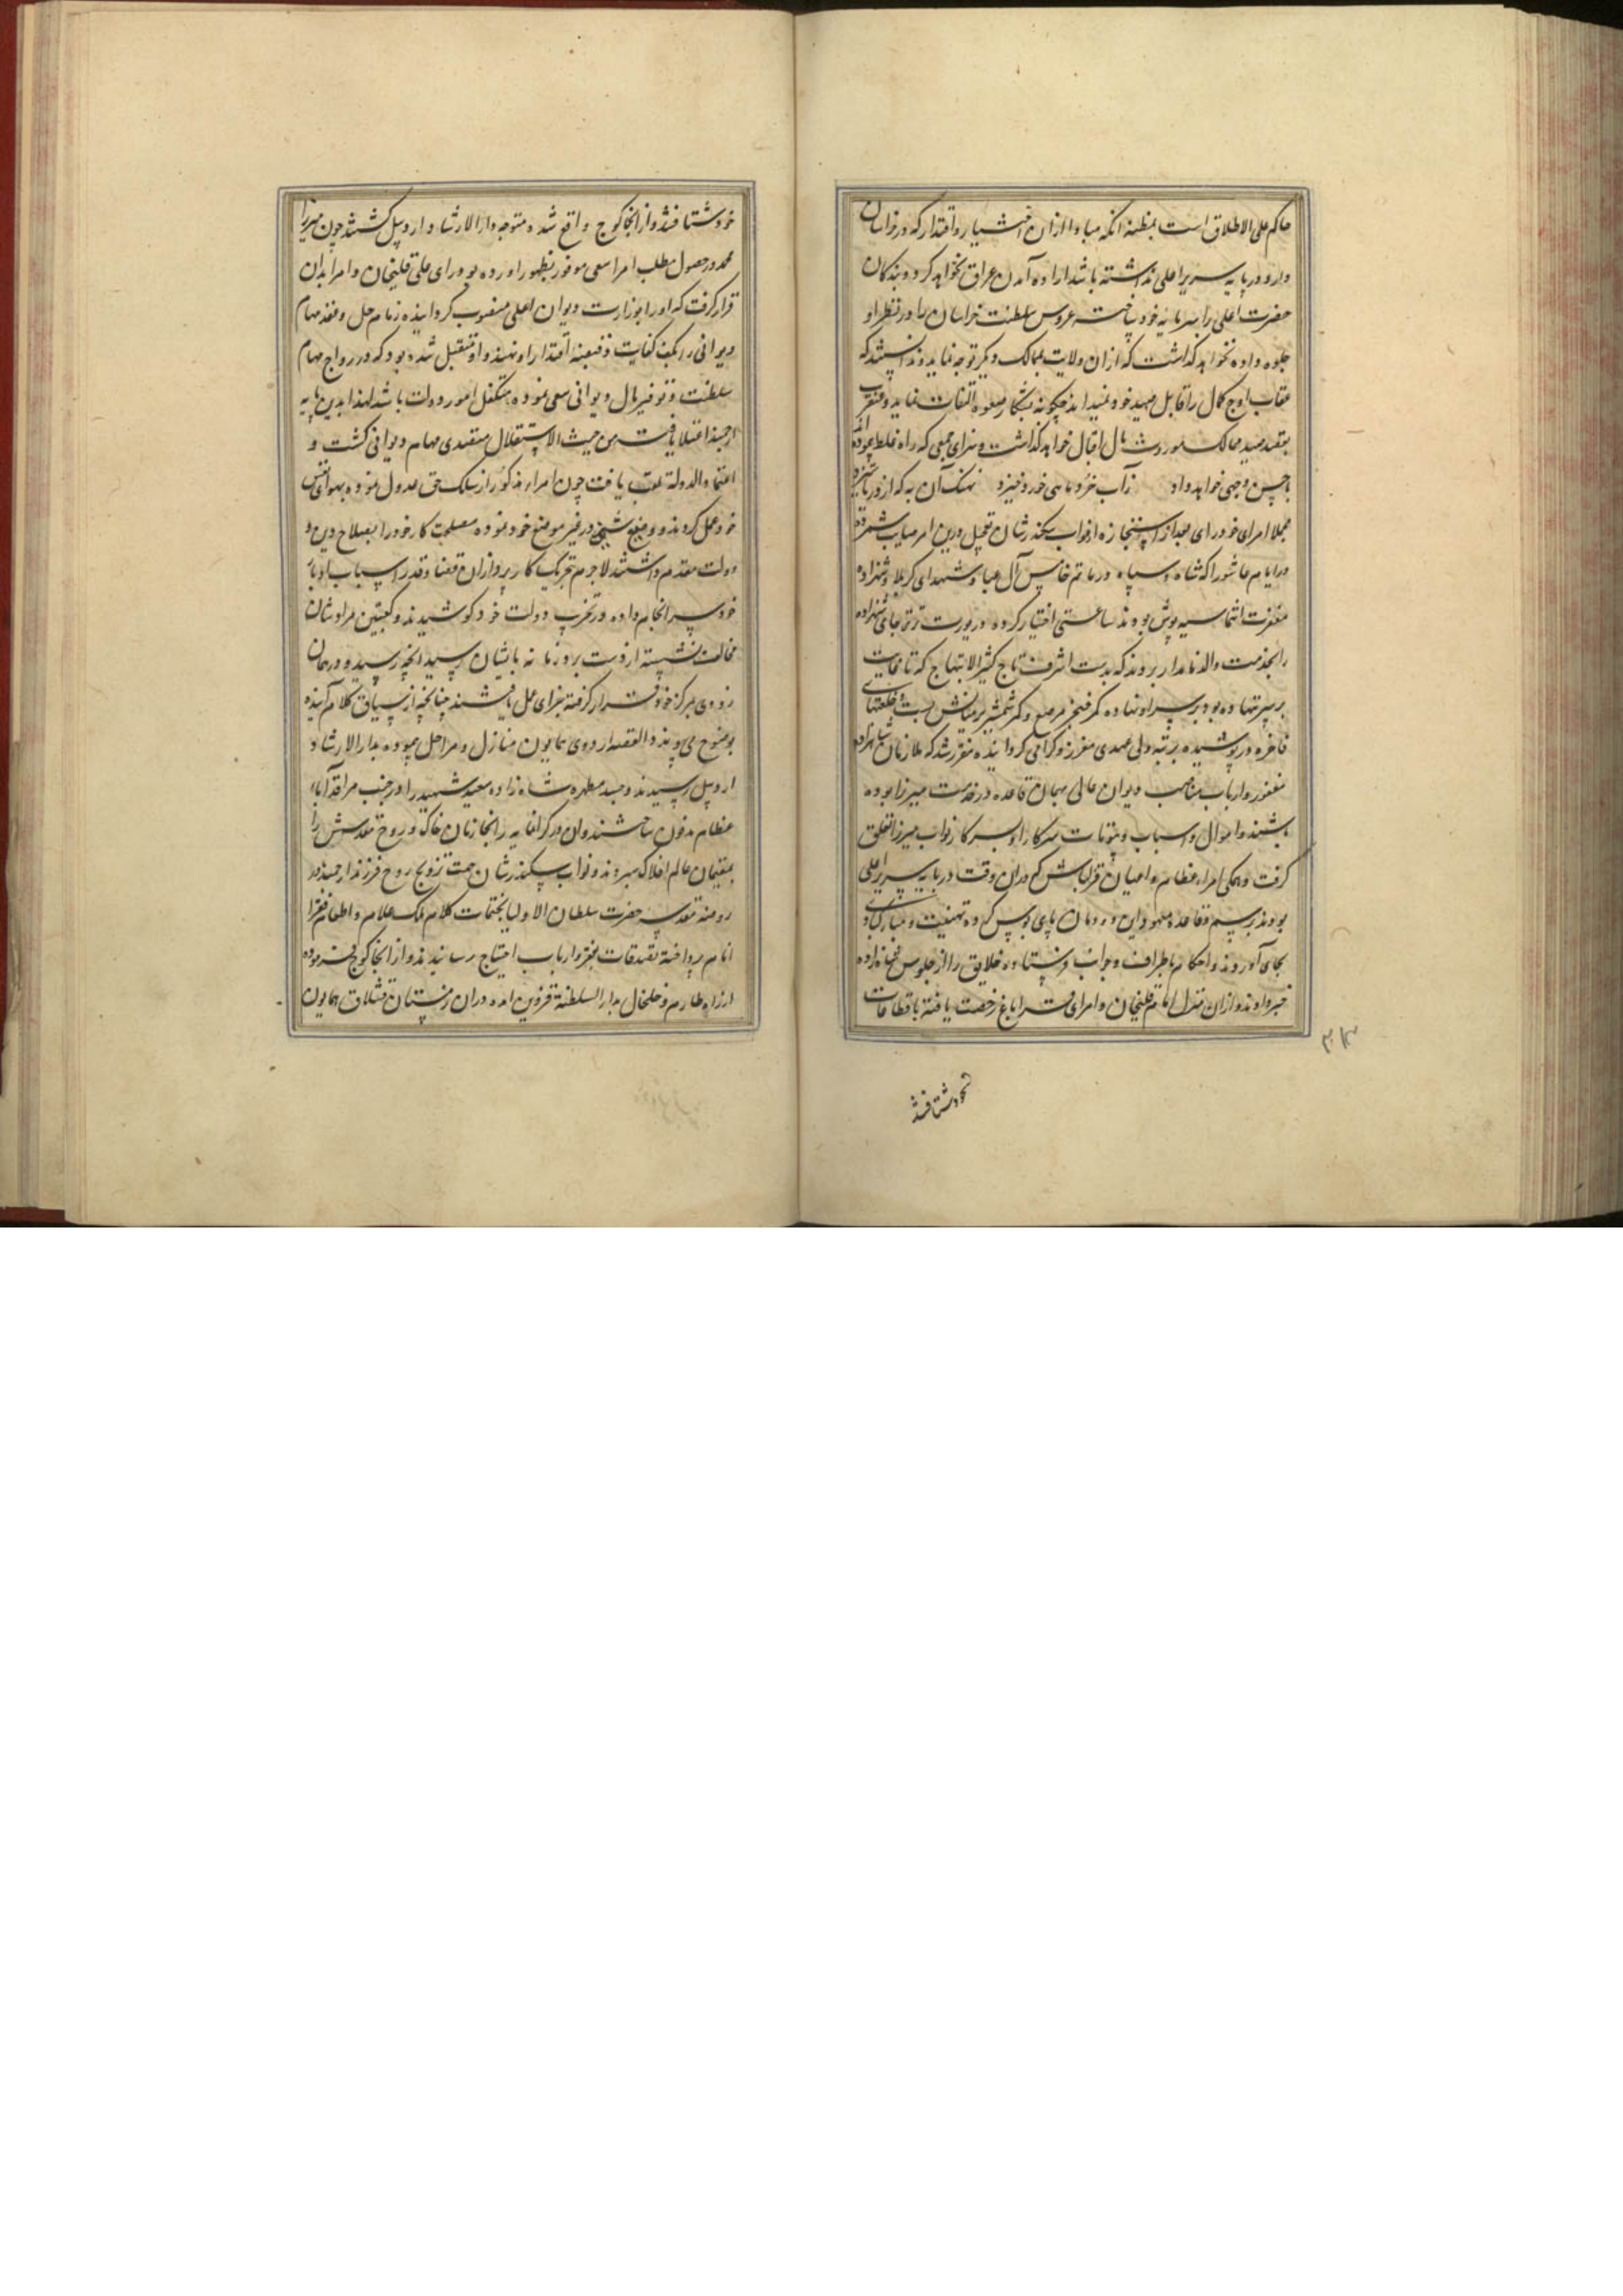 حاکم علی الاطلاق است بمظنه انکه مبادا ازان اختیار و اقتدار که در خراسان
دارد در پایه سریر اعلی نداشته باشد اراده آمدن عراق نخواهد کرد و بندکان
حضرت اعلی را سرمایه خود ساخته عروس سلطنت خراسان را در نظر او
جلوه داده نخواهد کذاشت که ازان ولایت بممالک دیکر توجه نماید و ندانستند که
عقاب اوج کمال را قابل صید خود نمیداند چکونه بشکار صعوه التفات نماید و عنقریب
بقصد صید ممالک موروث بال اقبال خواهد کشاد و سزای جمعی که راه غلط پیموده اند
باحسن وجهی خواهد داد ز آب خرد ماهی خرد خیزد نهنک آن به که از دریا ستیزد
مجملا امرای خود رای بعد از استجازه از نواب سکندر شان تعجیل درین امر صایب شمرده
در ایام عاشورا که شاه و سپاه در ماتم خامس آل عبا و شهدای کربلا و شهزاده
مغفرت انتما سیه پوش بودند ساعتی اختیار کرده در یورت ترتر جای شهزاده
را بخدمت والد نامدار بردند که بدست اشرف تاج کثیر الابتهاج که تا غایت
بر سر ننهاده بود بر سر او نهاده کمر خنجر مرصع و کمر شمشیر بر میانش بست و خلعتهای
فاخره در پوشیده برتبه ولی عهدی معزز و کرامی کردانیده مقرر شد که ملازمان شاهزاده
مغفور و ارباب مناصب دیوان عالی بهمان قاعده در خدمت میرزا بوده
باشند و اموال و اسباب و بیوتات سرکار او بسرکار نواب میرزا تعلق
کرفت و همکی امراء عظام و اعیان قزلباش که دران وقت در پایه سریر اعلی
بودند برسم و قاعده معهود این دودمان پای بوس کرده تهنیت و مبارکبادی
بجای آوردند و احکام باطراف و جوانب فرستاده خلایق را از جلوس شهزاده
خبر دادند و ازان منزل امام قلیخان و امرای قراباغ رخصت یافته باقطاعات
خود شتافتند
خود شتافتند و از انجا کوچ واقع شده متوجه دار الارشاد اردبیل کشتند چون میرزا
محمد در حصول مطلب امرا سعی موفور بظهور اورده بود رای علی قلیخان و امرا بدان
قرار کرفت که او را بوزارت دیوان اعلی منصوب کردانیده زمام حل و عقد مهام
دیوانی را بکف کفایت و قبضه اقتدار او نهند و او متقبل شده بود که در رواج مهام
سلطنت و توفیر مال دیوانی سعی نموده متکفل امور دولت باشد لهذا بدین پایه
ارجمند اعتلا یافت من حیث الاستقلال متصدی مهام دیوانی کشت و
اعتماد الدوله لقب یافت چون امراء مذکور از مسلک حق عدول نموده بهوای نفس
خود عمل کردند و وضع شیئی در غیر موضع خود نموده مصلحت کار خود را بصلاح دین و
دولت مقدم داشتند لاجرم بتحریک کارپردازان قضا و قدر اسباب ادبار
خود سرانجام داده در تخریب دولت خود کوشیدند و کعبتین مرادشان
مخالف نشسته از دست بر و زمانه بایشان رسید انچه رسید و در همان
زودی بمرکز خود قرار کرفته جزای عمل یافتند چنانچه از سیاق کلام آینده
بوضوح می پیوندد القصه اردوی همایون منازل و مراحل پیموده بدار الارشاد
اردبیل رسیدند و جسد مطهر شاه زاده سعید شهید را در جنب مراقد آباء
عظام مدفون ساختند و ان در کرانمایه را بخازنان خاک و روح مقدسش را
بمقیمان عالم افلاک سپردند و نواب سکندر شان جهت ترویح روح فرزند ارجمند در
روضه مقدسه حضرت سلطان الاولیا بختمات کلام ملک علام و اطعام فقرا
انام پرداخته تصدقات بفقرا و ارباب احتیاج رسانیدند و از انجا کوچ فرموده
از راه طارم و خلخال بدار السلطنة قزوین امده دران زمستان قشلاق همایون